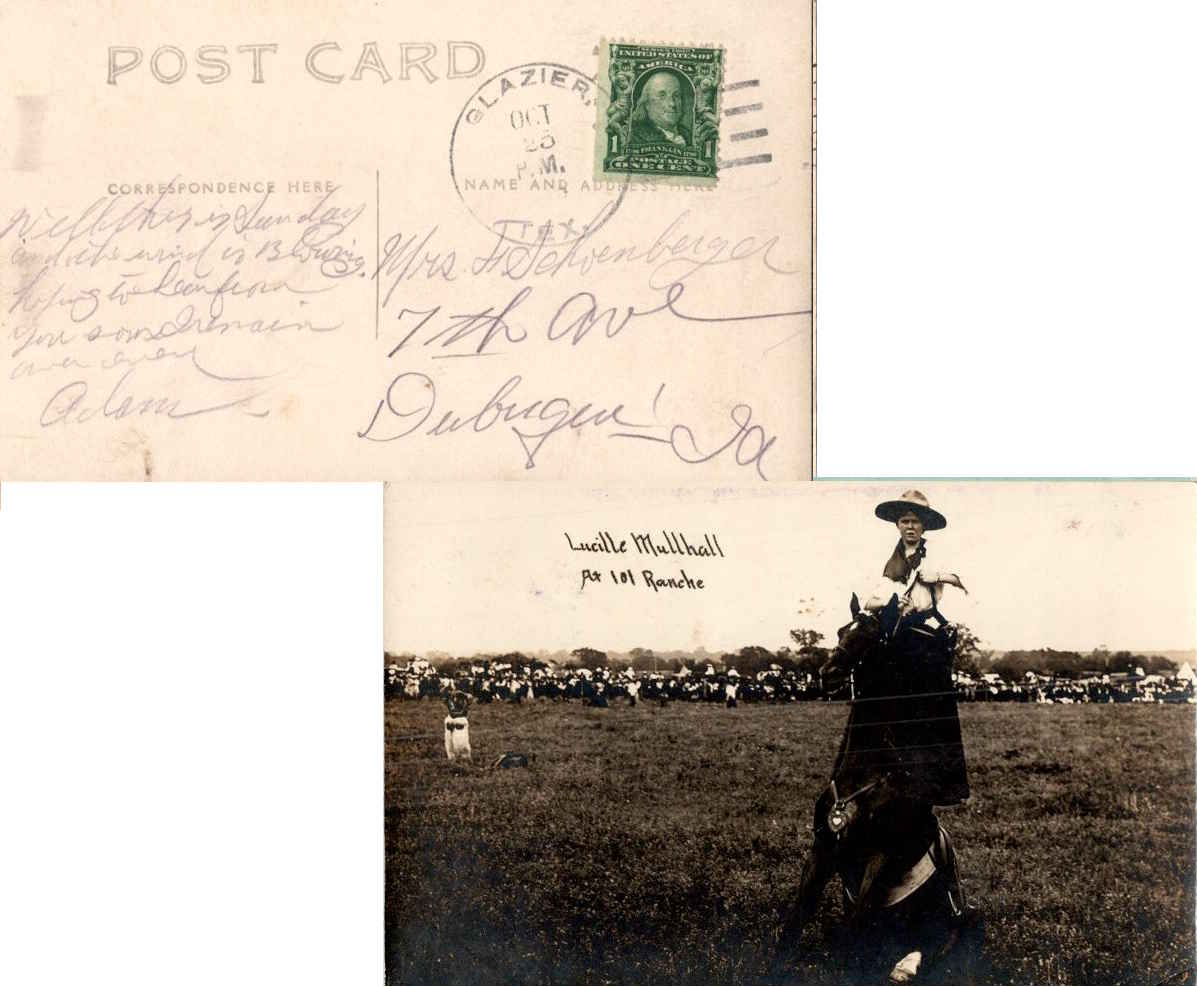 POST CARD
GLAZIER,
OCT
25
P.M.
TEX.
SERIES 1902
UNITED STATES OF
AMERICA
1 FRANKLIN 1
POSTAGE
ONE CENT
CORRESPONDENCE HERE
NAME AND ADDRESS HERE
Well this is Sunday
and the wind is Blowing.
hoping to hear from
you soon I remain
as ever
Adam
Mrs. H Schoenberger
7th Ave
Dubuque
Ia
Lucille Mullhall
At 101 Ranche